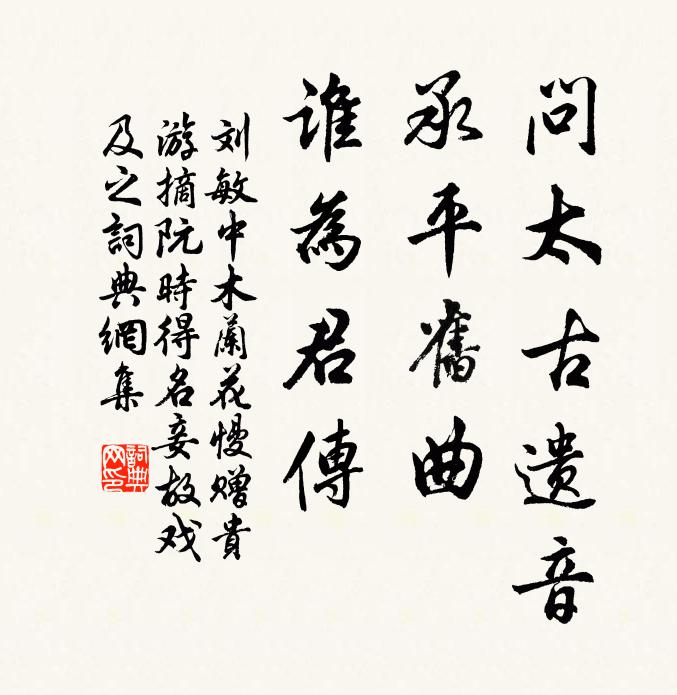 問太古遗音
承平舊曲
誰為君傳
刘敏中木蘭花慢赠貴
游摘阮時得名妾故戏
及之詞典網集
詞典
网印